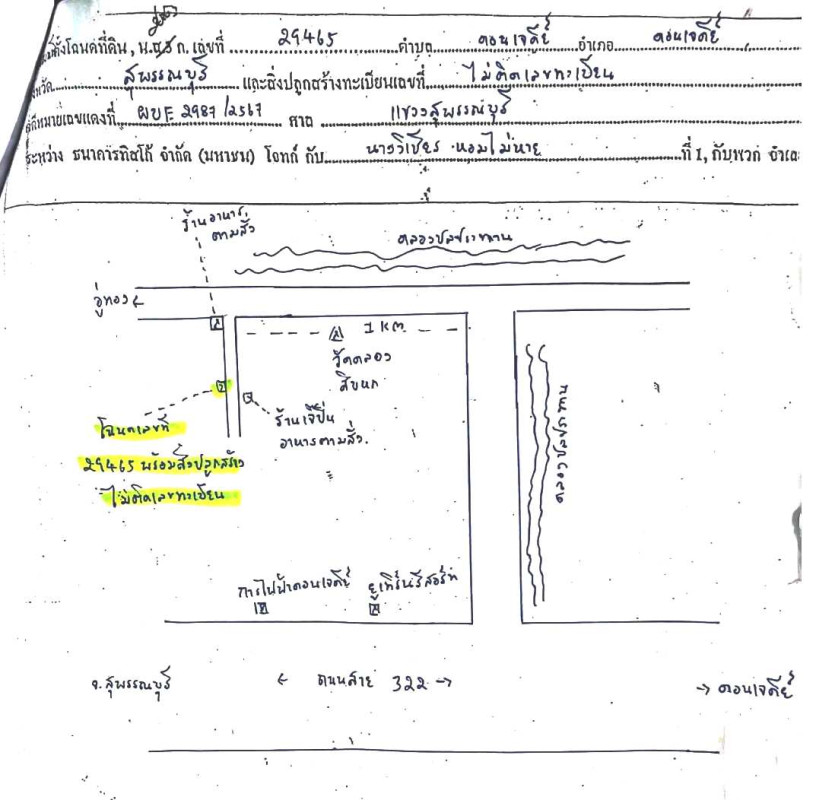 ที่ตั้งโฉนดที่ดิน, น.ส.3 ก. เลขที่ 29465 ตำบล ดอนเจดีย์ อำเภอ ดอนเจดีย์
จังหวัด สุพรรณบุรี และสิ่งปลูกสร้างทะเบียนเลขที่ ไม่ติดเลขทะเบียน
คดีหมายเลขแดงที่ ผบE 2987/2567 ศาล แขวงสุพรรณบุรี
ระหว่าง ธนาคารทิสโก้ จำกัด (มหาชน) โจทก์ กับ นางวิเชียร หอมไม่หาย ที่ 1, กับพวก จำเลย
ร้านอาหาร
ตามสั่ง
คลองชลประทาน
อู่ทอง ←
1 KM.
วัดคลอง
สีขนก
ร้านเจ๊ปิ่น
อาหารตามสั่ง.
โฉนดเลขที่
29465 พร้อมสิ่งปลูกสร้าง
ไม่ติดเลขทะเบียน
คลองชลประทาน
การไฟฟ้าดอนเจดีย์
ยูเทิร์นรีสอร์ท
จ.สุพรรณบุรี ← ถนนสาย 322 → → ดอนเจดีย์